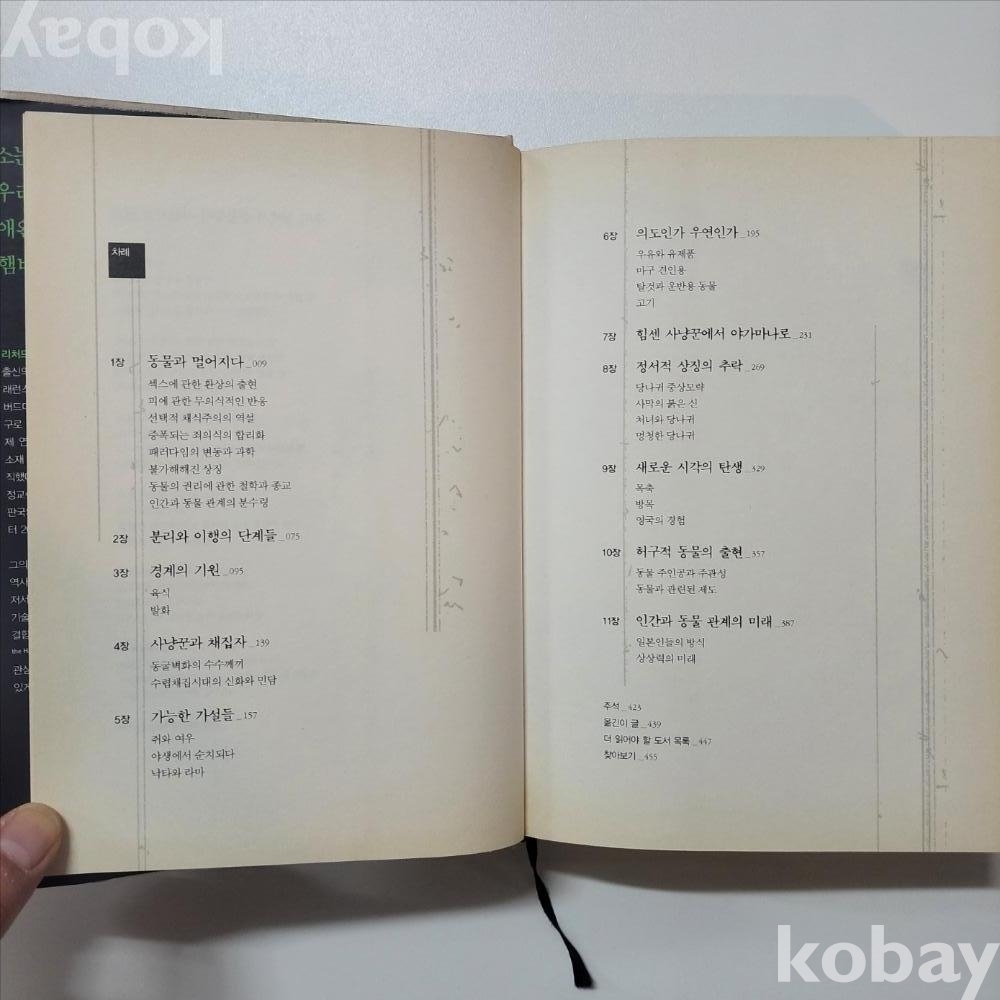 kobay
소는
우리
애완
햄버
리처드
출신의
래런스
버드대
구로
제 연
소재
직했다
정교수
판국
터 20
그의
역사
저서
기술
결합
the H
관심
있게
차례
1장 동물과 멀어지다 _009
섹스에 관한 환상의 출현
피에 관한 무의식적인 반응
선택적 채식주의의 역설
증폭되는 죄의식의 합리화
패러다임의 변동과 과학
불가해해진 상징
동물의 권리에 관한 철학과 종교
인간과 동물 관계의 분수령
2장 분리와 이행의 단계들 _075
3장 경계의 기원 _095
육식
발화
4장 사냥꾼과 채집자 _139
동굴벽화의 수수께끼
수렵채집시대의 신화와 민담
5장 가능한 가설들 _157
쥐와 여우
야생에서 순치되다
낙타와 라마
6장 의도인가 우연인가 _195
우유와 유제품
마구 견인용
탈것과 운반용 동물
고기
7장 힘센 사냥꾼에서 야가마나로 _231
8장 정서적 상징의 추락 _269
당나귀 중상모략
사막의 붉은 신
처녀와 당나귀
멍청한 당나귀
9장 새로운 시각의 탄생 _329
목축
방목
영국의 경험
10장 허구적 동물의 출현 _357
동물 주인공과 주관성
동물과 관련된 제도
11장 인간과 동물 관계의 미래 _387
일본인들의 방식
상상력의 미래
주석 _423
옮긴이 글 _439
더 읽어야 할 도서 목록 _447
찾아보기 _455
kobay